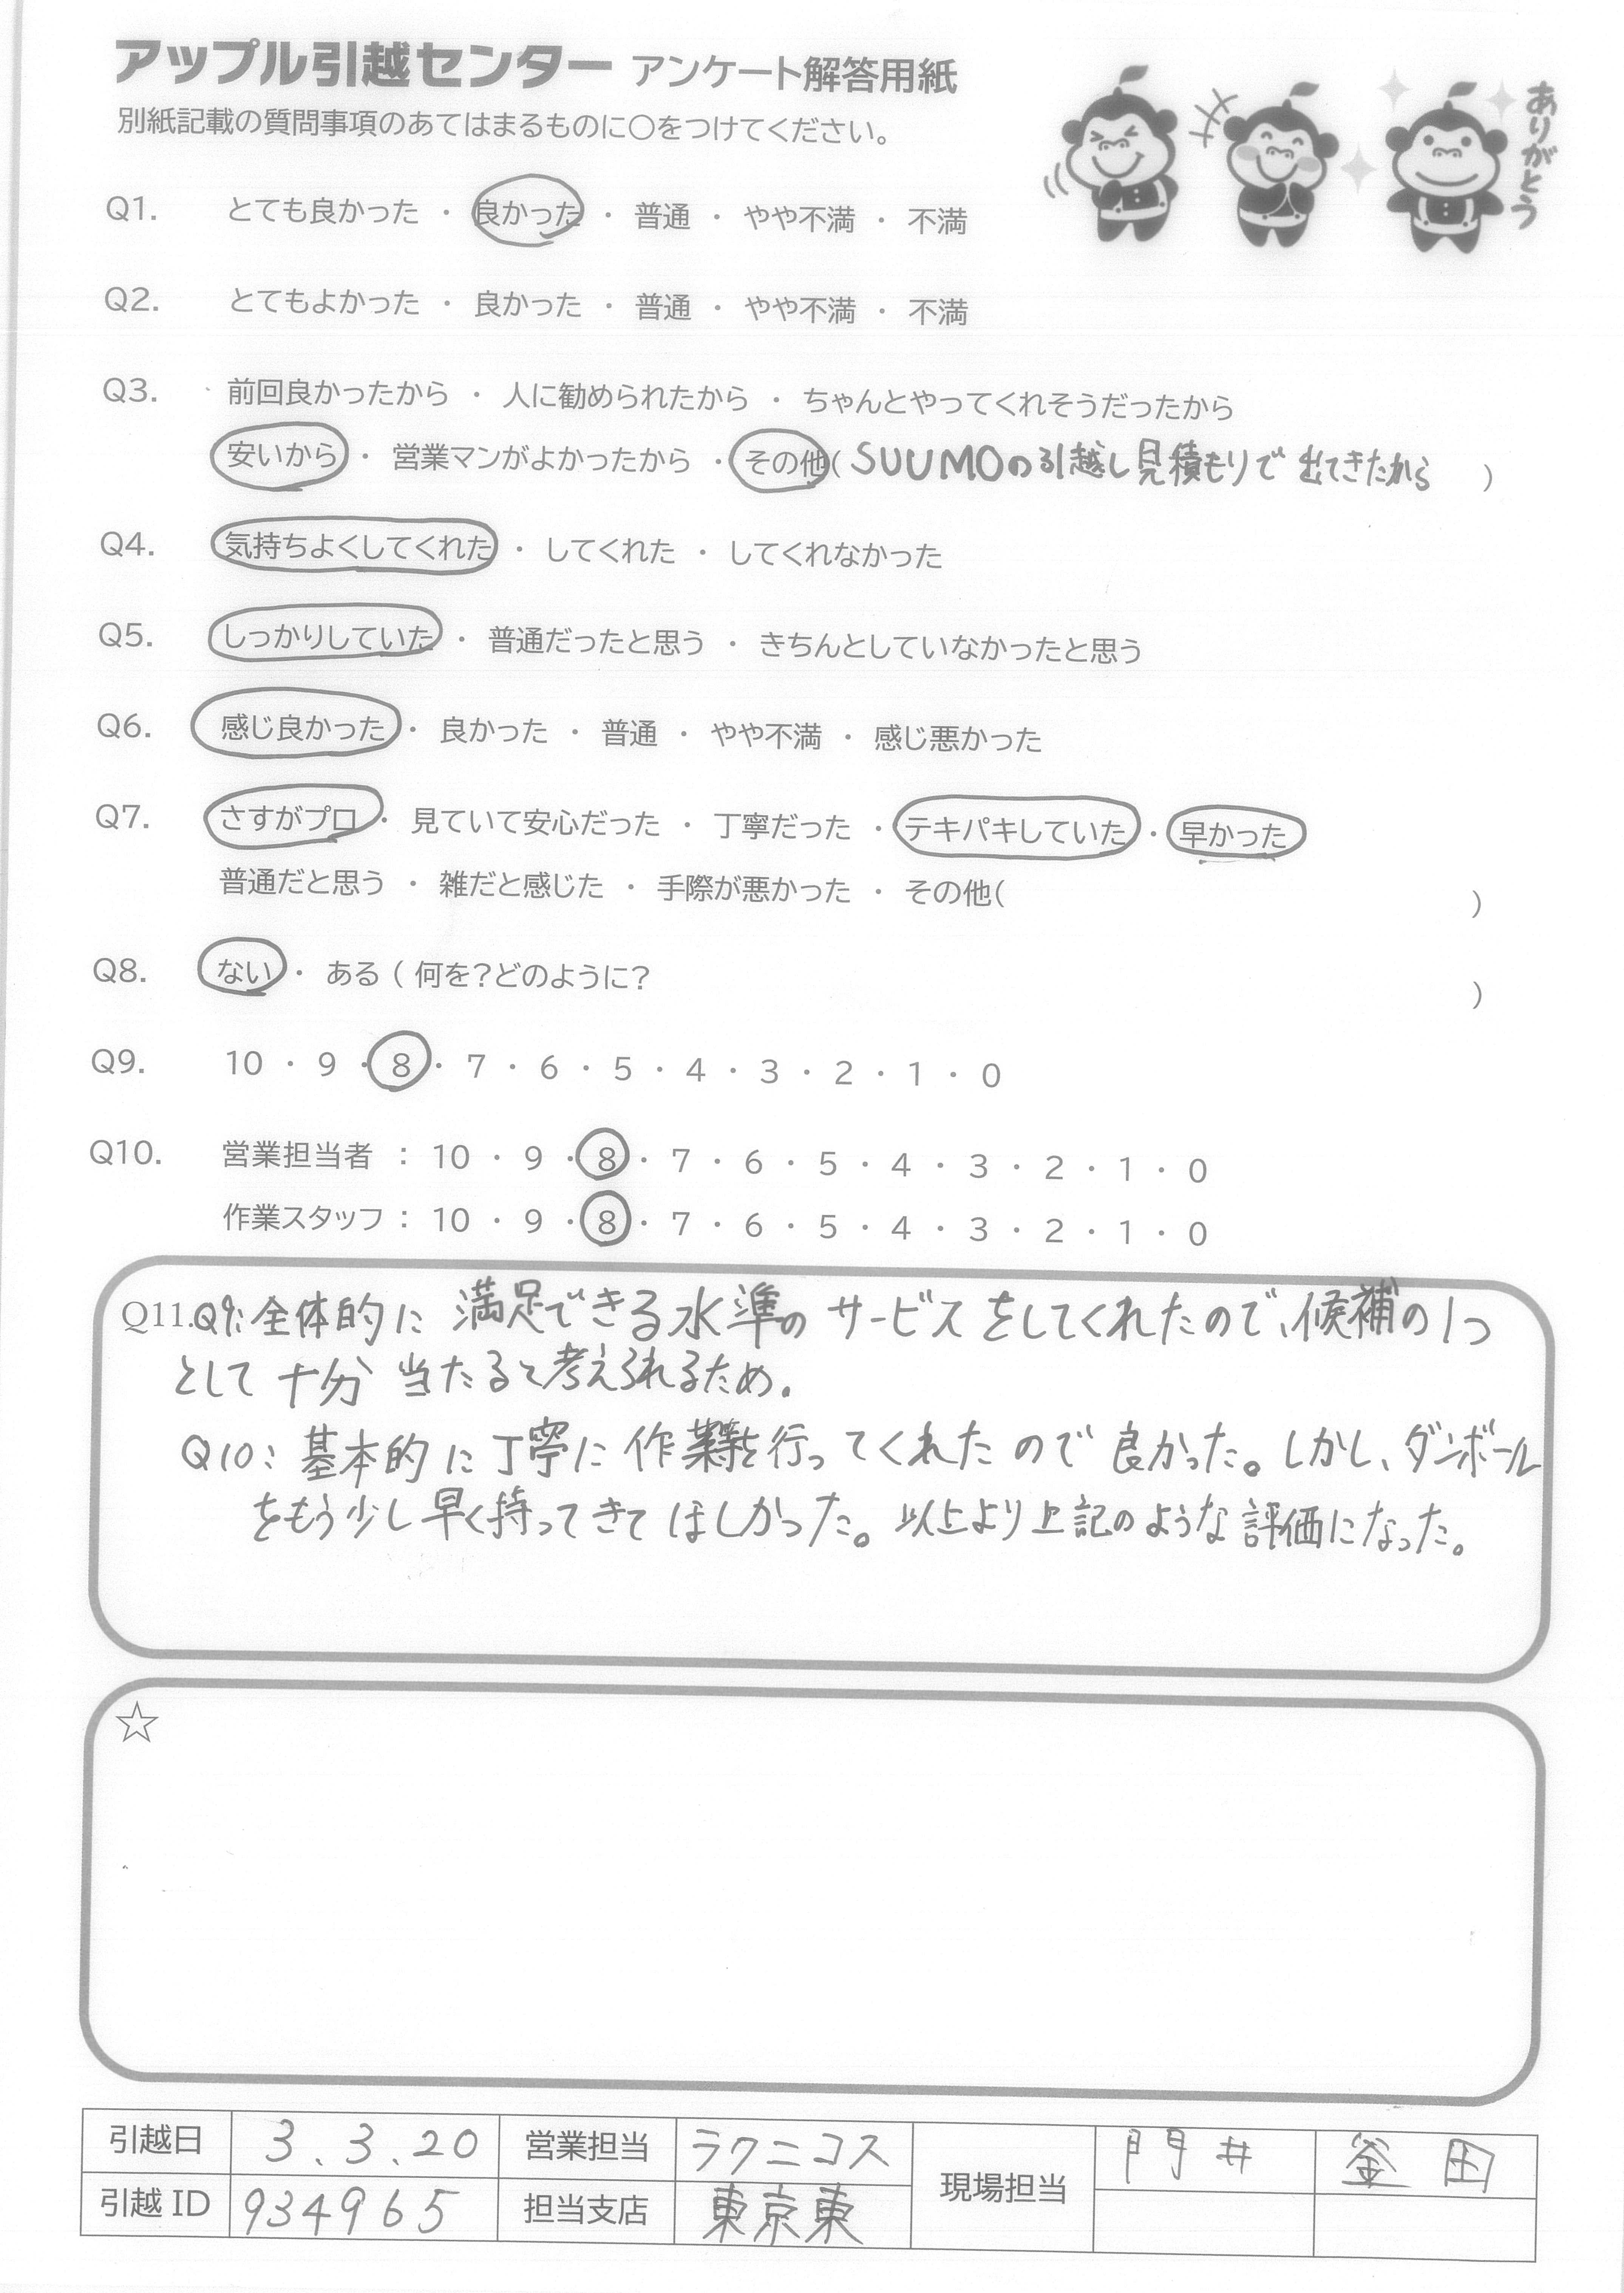 アップル引越センター アンケート解答用紙
ありがとう
別紙記載の質問事項のあてはまるものに○をつけてください。
Q1. とても良かった ・ 良かった ・ 普通 ・ やや不満 ・ 不満
Q2. とてもよかった ・ 良かった ・ 普通 ・ やや不満 ・ 不満
Q3. 前回良かったから ・ 人に勧められたから ・ ちゃんとやってくれそうだったから
安いから ・ 営業マンがよかったから ・ その他( SUUMOの引越し見積もりで出てきたから )
Q4. 気持ちよくしてくれた ・ してくれた ・ してくれなかった
Q5. しっかりしていた ・ 普通だったと思う ・ きちんとしていなかったと思う
Q6. 感じ良かった ・ 良かった ・ 普通 ・ やや不満 ・ 感じ悪かった
Q7. さすがプロ ・ 見ていて安心だった ・ 丁寧だった ・ テキパキしていた ・ 早かった
普通だと思う ・ 雑だと感じた ・ 手際が悪かった ・ その他( )
Q8. ない ・ ある ( 何を?どのように? )
Q9. 10 ・ 9 ・ 8 ・ 7 ・ 6 ・ 5 ・ 4 ・ 3 ・ 2 ・ 1 ・ 0
Q10. 営業担当者 : 10 ・ 9 ・ 8 ・ 7 ・ 6 ・ 5 ・ 4 ・ 3 ・ 2 ・ 1 ・ 0
作業スタッフ : 10 ・ 9 ・ 8 ・ 7 ・ 6 ・ 5 ・ 4 ・ 3 ・ 2 ・ 1 ・ 0
Q11. Q9: 全体的に満足できる水準のサービスをしてくれたので、候補の1つ
として十分当たると考えられるため。
Q10: 基本的に丁寧に作業を行ってくれたので良かった。しかし、ダンボール
をもう少し早く持ってきてほしかった。以上より上記のような評価になった。
☆
引越日 3.3.20 営業担当 ラクニコス 現場担当 門井 釜田
引越ID 934965 担当支店 東京東